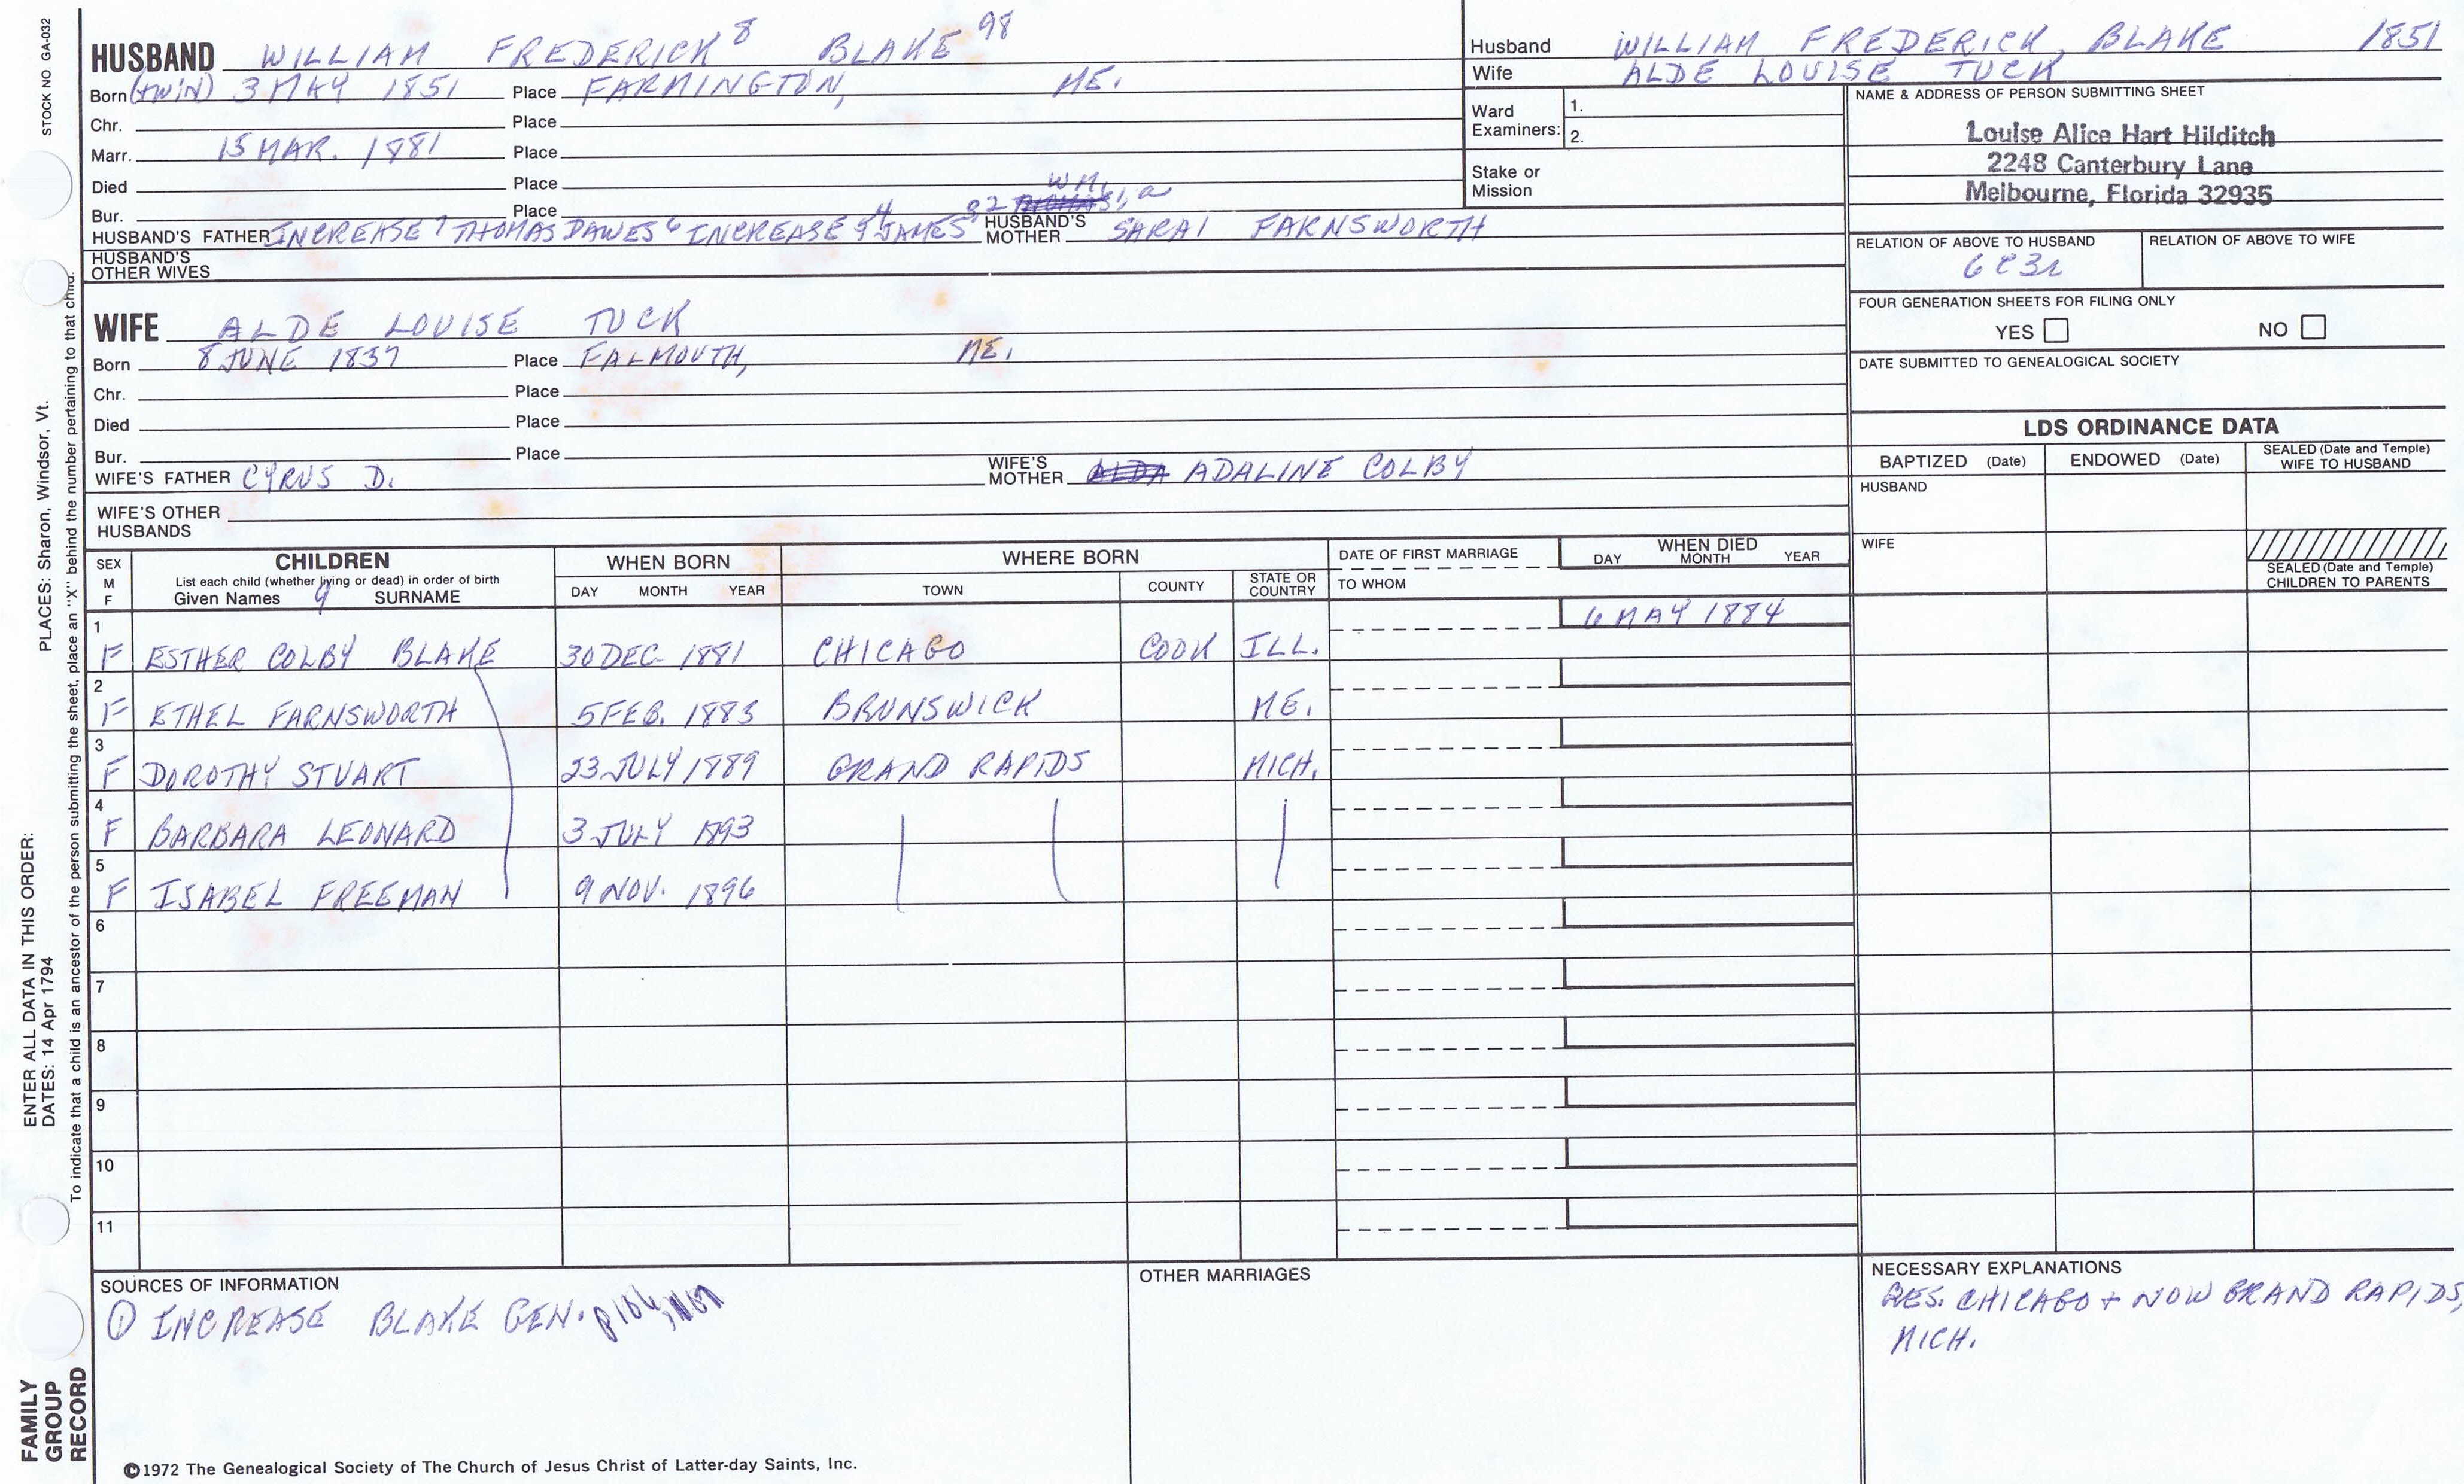 STOCK NO. GA-032
HUSBAND WILLIAM FREDERICK 8 BLAKE 98
Born (TWIN) 3 MAY 1851 Place FARMINGTON, ME.
Chr. Place
Marr. 15 MAR. 1881 Place
Died Place
Bur. Place
WM.
HUSBAND'S FATHER INCREASE 7 THOMAS DAWES 6 INCREASE 5 4 JAMES HUSBAND'S MOTHER SARAI FARNSWORTH
HUSBAND'S OTHER WIVES
Husband WILLIAM FREDERICK BLAKE 1851
Wife ALDE LOUISE TUCK
Ward Examiners: 1.
2.
Stake or Mission
NAME & ADDRESS OF PERSON SUBMITTING SHEET
Louise Alice Hart Hilditch
2248 Canterbury Lane
Melbourne, Florida 32935
RELATION OF ABOVE TO HUSBAND RELATION OF ABOVE TO WIFE
6C3R
FOUR GENERATION SHEETS FOR FILING ONLY
YES NO
DATE SUBMITTED TO GENEALOGICAL SOCIETY
WIFE ALDE LOUISE TUCK
Born 8 JUNE 1857 Place FALMOUTH, ME.
Chr. Place
Died Place
Bur. Place
WIFE'S FATHER CYRUS D. WIFE'S MOTHER ALDA ADALINE COLBY
WIFE'S OTHER HUSBANDS
LDS ORDINANCE DATA
BAPTIZED (Date) ENDOWED (Date) SEALED (Date and Temple) WIFE TO HUSBAND
HUSBAND
WIFE
SEALED (Date and Temple) CHILDREN TO PARENTS
SEX M F
CHILDREN
List each child (whether living or dead) in order of birth
Given Names 9 SURNAME
WHEN BORN
DAY MONTH YEAR
WHERE BORN
TOWN COUNTY STATE OR COUNTRY
DATE OF FIRST MARRIAGE
TO WHOM
WHEN DIED
DAY MONTH YEAR
1 F ESTHER COLBY BLAKE 30 DEC 1881 CHICAGO COOK ILL. 6 MAY 1884
2 F ETHEL FARNSWORTH 5 FEB. 1883 BRUNSWICK ME.
3 F DOROTHY STUART 23 JULY 1889 GRAND RAPIDS MICH.
4 F BARBARA LEONARD 3 JULY 1893
5 F ISABEL FREEMAN 9 NOV. 1896
6
7
8
9
10
11
SOURCES OF INFORMATION
① INCREASE BLAKE GEN.
OTHER MARRIAGES
NECESSARY EXPLANATIONS
RES. CHICAGO + NOW GRAND RAPIDS,
MICH.
©1972 The Genealogical Society of The Church of Jesus Christ of Latter-day Saints, Inc.
FAMILY GROUP RECORD
ENTER ALL DATA IN THIS ORDER:
DATES: 14 Apr 1794
PLACES: Sharon, Windsor, Vt.
To indicate that a child is an ancestor of the person submitting the sheet, place an "X" behind the number pertaining to that child.